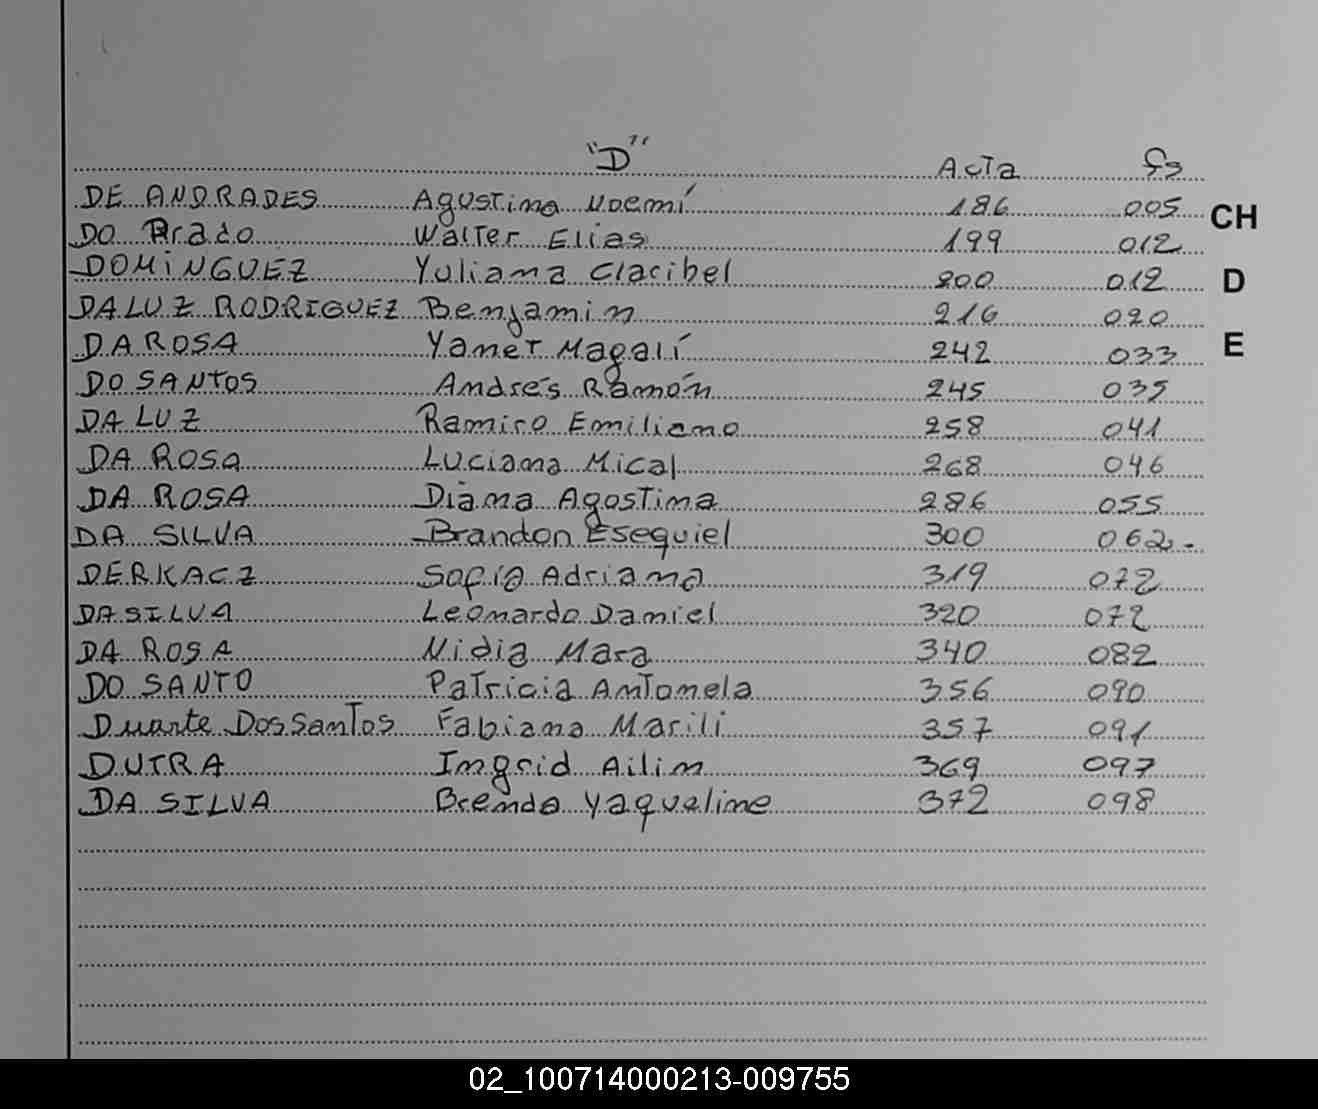 "D" Acta Fs
DE ANDRADES Agustina Noemí 186 005
CH
DO Prado Walter Elias 199 012
DOMINGUEZ Yuliana Claribel 200 012
D
DALUZ RODRIGUEZ Benjamin 216 020
DAROSA Yanet Magalí 242 033
E
DO SANTOS Andrés Ramón 245 035
DA LUZ Ramiro Emiliano 258 041
DA ROSA Luciana Mical 268 046
DA ROSA Diana Agostina 286 055
DA SILVA Brandon Esequiel 300 062.-
DERKACZ Sofia Adriana 319 072
DASILVA Leonardo Daniel 320 072
DA ROSA Nidia Mara 340 082
DO SANTO Patricia Antonela 356 090
Duarte DosSantos Fabiana Marili 357 091
DUTRA Ingrid Ailin 369 097
DA SILVA Brenda Yaqueline 372 098
02_100714000213-009755